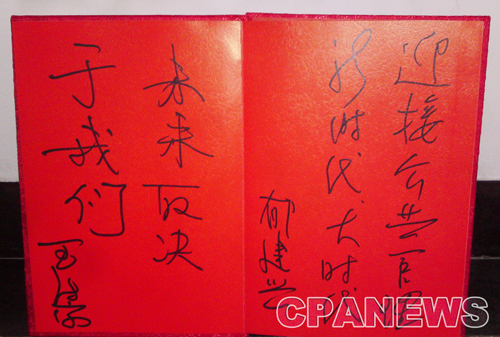 迎接公共管理
新时代、大时代
郁建兴
未来取决
于我们
CPANEWS